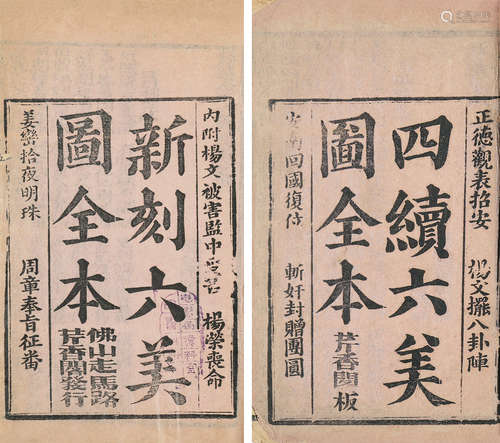 正德觀表招安
楊文擺八卦陣
四續六美
圖全本
芹香閣板
回國復位
斬奸封贈團圓
內附楊文被害監中受苦
楊榮喪命
新刻六美
圖全本
佛山走馬路
芹香閣發行
姜巒拾夜明珠
周章奉旨征番